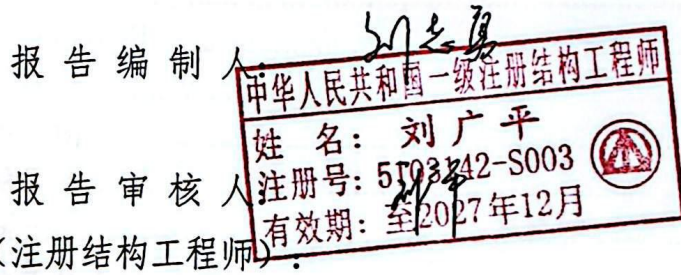 报告编制人:
刘志勇
中华人民共和国一级注册结构工程师
姓 名: 刘广平
报告审核人
注册号: 5103242-S003
有效期: 至2027年12月
(注册结构工程师):